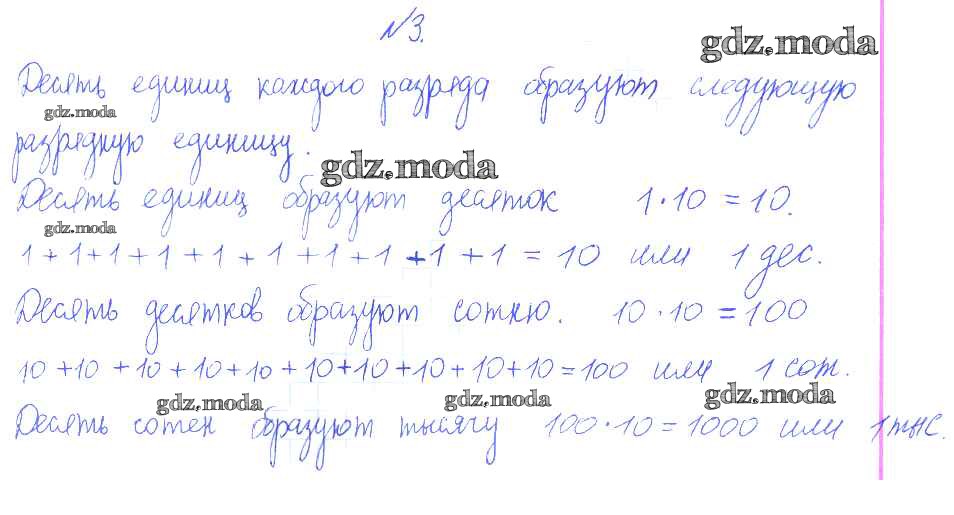 №3.
gdz.moda
Десять единиц каждого разряда образуют следующую
gdz.moda
разрядную единицу.
gdz.moda
Десять единиц образуют десяток 1·10=10.
gdz.moda
1+1+1+1+1+1+1+1+1+1=10 или 1 дес.
Десять десятков образуют сотню. 10·10=100
10+10+10+10+10+10+10+10+10+10=100 или 1 сот.
gdz.moda gdz.moda gdz.moda
Десять сотен образуют тысячу 100·10=1000 или 1 тыс.